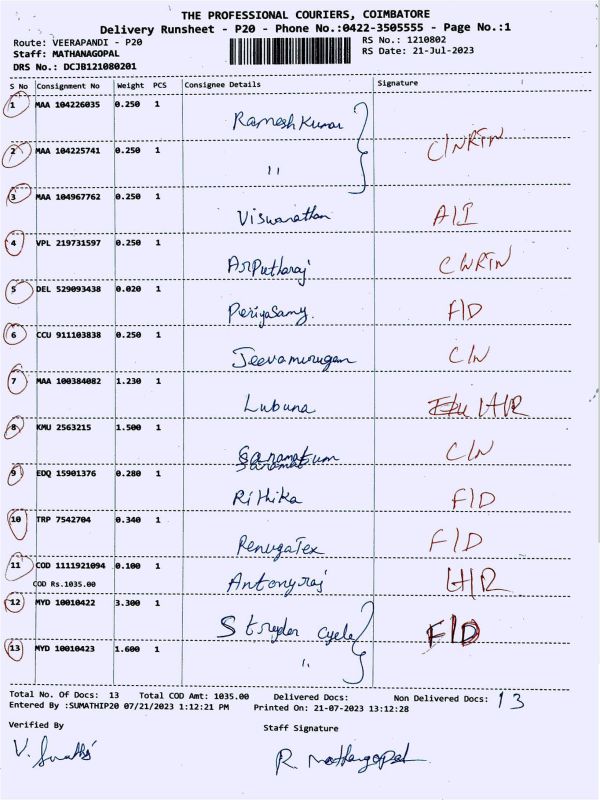 THE PROFESSIONAL COURIERS, COIMBATORE
Delivery Runsheet - P20 - Phone No.:0422-3505555 - Page No.:1
Route: VEERAPANDI - P20 RS No.: 1210802
Staff: MATHANAGOPAL RS Date: 21-Jul-2023
DRS No.: DCJB121080201
S No Consignment No Weight PCS Consignee Details Signature
1 MAA 104226035 0.250 1
Ramesh Kumar
C/NRTN
2 MAA 104225741 0.250 1
"
3 MAA 104967762 0.250 1
Viswanathan
4 VPL 219731597 0.250 1
ArPutharaj
5 DEL 529093438 0.020 1
PeriyaSamy. F/D
6 CCU 911103838 0.250 1
Jeevamurugan C/N
7 MAA 100384082 1.230 1
Lubuna
8 KMU 2563215 1.500 1
C/N
9 EDQ 15901376 0.280 1
Rithika F/D
10 TRP 7542704 0.340 1
RenugaTex F/D
11 COD 1111921094 0.100 1
COD Rs.1035.00 Antonyraj
12 MYD 10010422 3.300 1
Stryder Cycle F/D
13 MYD 10010423 1.600 1
"
Total No. Of Docs: 13 Total COD Amt: 1035.00 Delivered Docs: Non Delivered Docs: 13
Entered By :SUMATHIP20 07/21/2023 1:12:21 PM Printed On: 21-07-2023 13:12:28
Verified By Staff Signature
R. Mathangopal